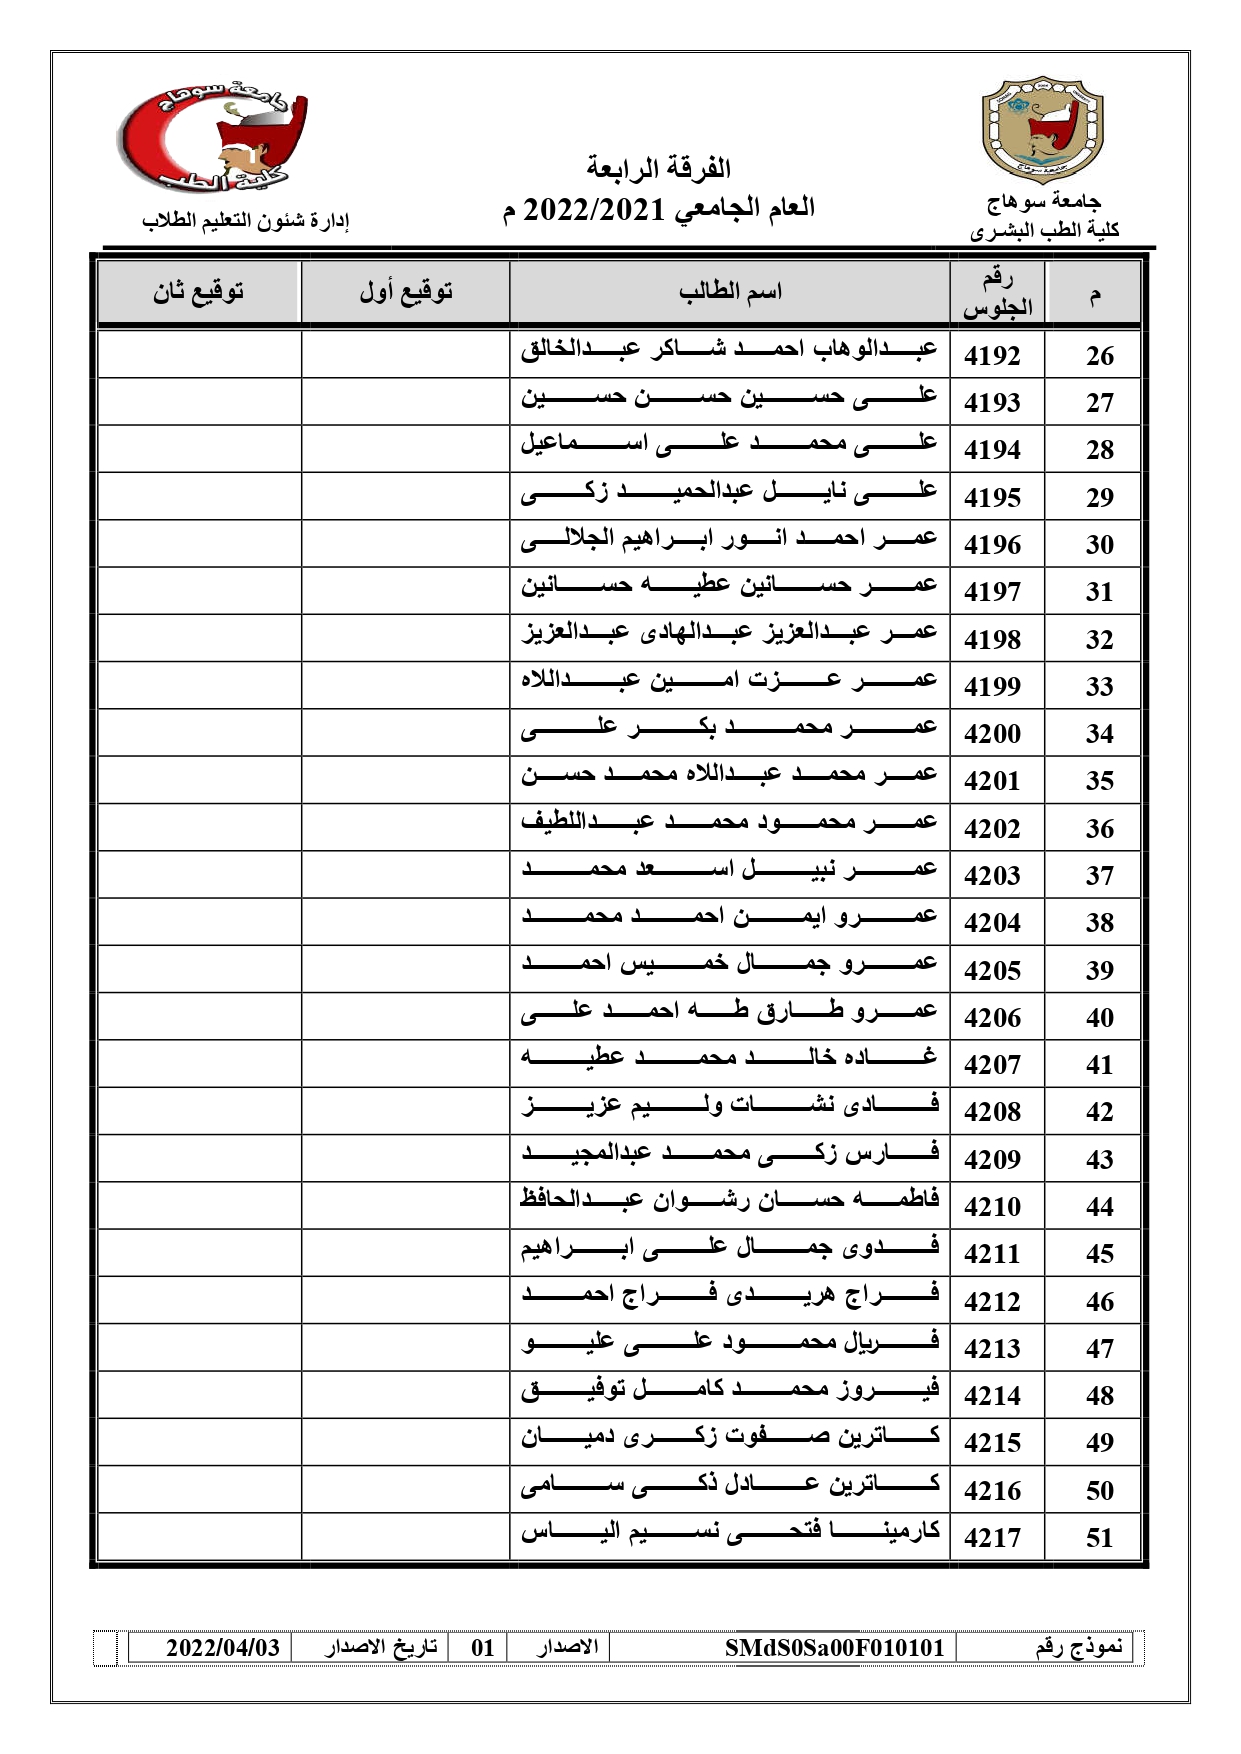 جامعة سوهاج
كلية الطب
جامعة سوهاج
الفرقة الرابعة
العام الجامعي 2022/2021 م
جامعة سوهاج
كلية الطب البشرى
إدارة شئون التعليم الطلاب
م رقم الجلوس اسم الطالب توقيع أول توقيع ثان
26 4192 عبدالوهاب احمد شاكر عبدالخالق
27 4193 على حسين حسن حسين
28 4194 على محمد على اسماعيل
29 4195 على نايل عبدالحميد زكى
30 4196 عمر احمد انور ابراهيم الجلالى
31 4197 عمر حسانين عطيه حسانين
32 4198 عمر عبدالعزيز عبدالهادى عبدالعزيز
33 4199 عمر عزت امين عبداللاه
34 4200 عمر محمد بكر على
35 4201 عمر محمد عبداللاه محمد حسن
36 4202 عمر محمود محمد عبداللطيف
37 4203 عمر نبيل اسعد محمد
38 4204 عمرو ايمن احمد محمد
39 4205 عمرو جمال خميس احمد
40 4206 عمرو طارق طه احمد على
41 4207 غاده خالد محمد عطيه
42 4208 فادى نشات وليم عزيز
43 4209 فارس زكى محمد عبدالمجيد
44 4210 فاطمه حسان رشوان عبدالحافظ
45 4211 فدوى جمال على ابراهيم
46 4212 فراج هريدى فراج احمد
47 4213 فريال محمود على عليو
48 4214 فيروز محمد كامل توفيق
49 4215 كاترين صفوت زكرى دميان
50 4216 كاترين عادل ذكى سامى
51 4217 كارمينا فتحى نسيم الياس
نموذج رقم SMdS0Sa00F010101 الاصدار 01 تاريخ الاصدار 2022/04/03